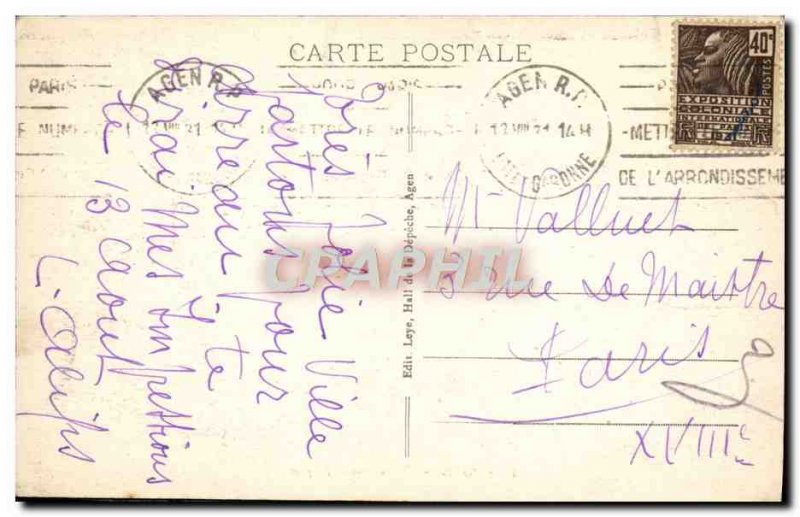 CARTE POSTALE
PARIS
AGEN R.P.
12 VIII 31 14 H
LOT ET GARONNE
E NUMÉRO
-METTRE LE NUMÉRO
AGEN R.P.
12 VIII 31 14 H
LOT ET GARONNE
-METT
DE L'ARRONDISSEME
40c
POSTES
EXPOSITION
COLONIALE
INTERNATIONALE
PARIS 1931
Très Jolie Ville
Partons pour
te
dirai Mes Impressions
le 13 aout
Edit. Leye, Hall de la Dépêche, Agen
Mr Valluet
3 Rue De Maistre
Paris
XVIIIe
CPAPHIL